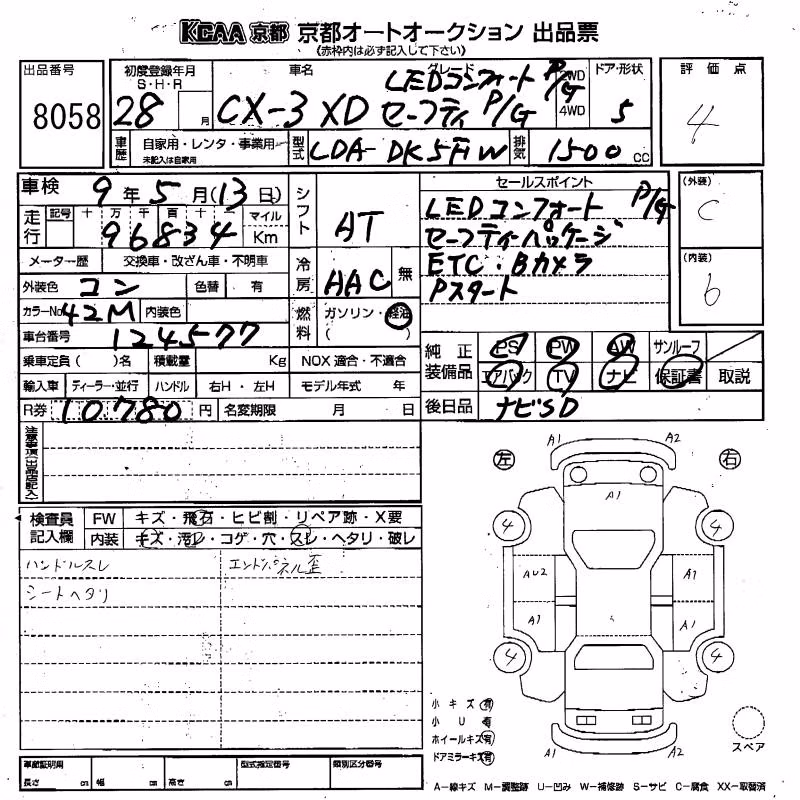 KCAA 京都 京都オートオークション 出品票
(赤枠内は必ず記入して下さい)
出品番号 8058
初度登録年月 S・H・R 28 月
車名 CX-3 XD
グレード LEDコンフォート P/G セーフティ P/G
2WD 4WD
ドア・形状 5
評価点 4
車歴 自家用・レンタ・事業用 未記入は自家用
型式 LDA-DK5FW
排気 1500 cc
車検 9年 5月(13日)
シフト AT
セールスポイント
LEDコンフォート P/G
セーフティパッケージ
ETC・Bカメラ
Pスタート
(外装) C
(内装) b
走行 記号 十 万 千 百 十 一 マイル Km
96834
メーター歴 交換車・改ざん車・不明車
冷房 AAC 無
外装色 コン 色替 有
カラーNo 42M 内装色
燃料 ガソリン・軽油 ( )
車台番号 124577
乗車定員 ( )名 積載量 Kg NOX 適合・不適合
輸入車 ディーラー・並行 ハンドル 右H・左H モデル年式 年
R券 10780 円 名変期限 月 日
純正装備品 PS PW AW サンルーフ
エアバック TV ナビ 保証書 取説
後日品 ナビSD
注意事項(出品店記入)
検査員記入欄 FW キズ・飛石・ヒビ割・リペア跡・X要
内装 キズ・汚レ・コゲ・穴・スレ・ヘタリ・破レ
ハンドルスレ エンドパネル歪
シートヘタリ
左 A1 A2 右
A1
4 4
AU2 A1
A1 A1
4 4
A1 A2
小キズ 有
小U 有
ホイールキズ 有
ドアミラーキズ 有
スペア
車庫証明用 長さ cm 幅 cm 高さ cm 型式指定番号 類別区分番号
A-線キズ M-調整跡 U-凹み W-補修跡 S-サビ C-腐食 XX-取替済